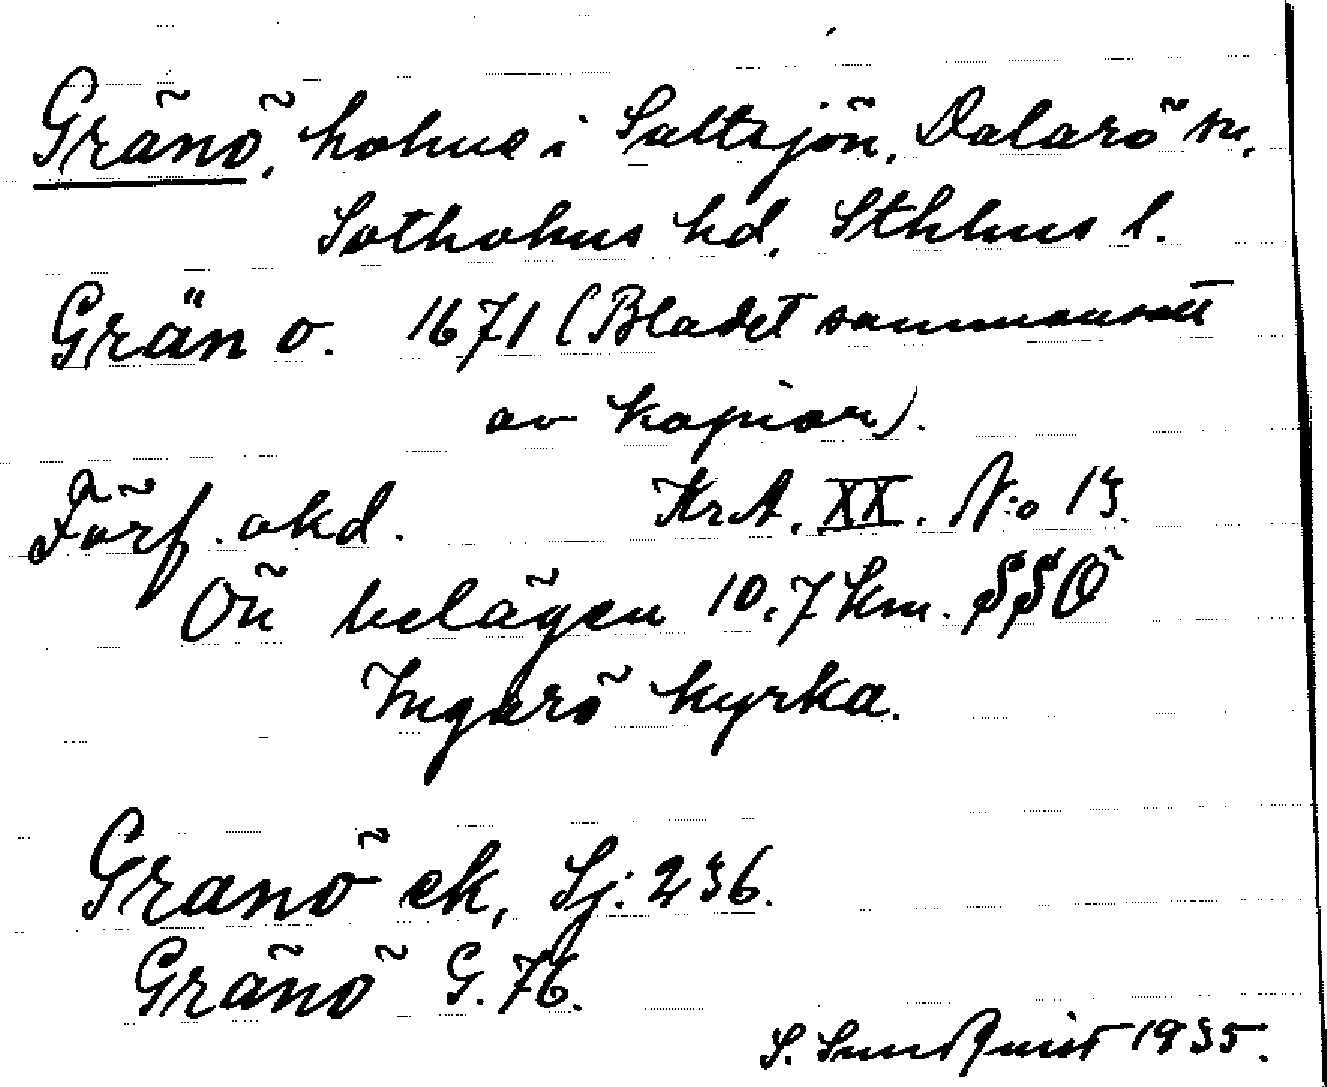 Gränö, holme i Saltsjön, Dalarö sn,
Sotholms hd, Sthlms l.
Grän o. 1671 (Bladet sammansatt
av kopior).
Förf. okd. Kr.A. XX. N:o 13.
Ön belägen 10,7 km. SSÖ
Ingarö kyrka.
Granö ek, Sj: 236.
Gränö G. 76.
S. Sundquist 1935.